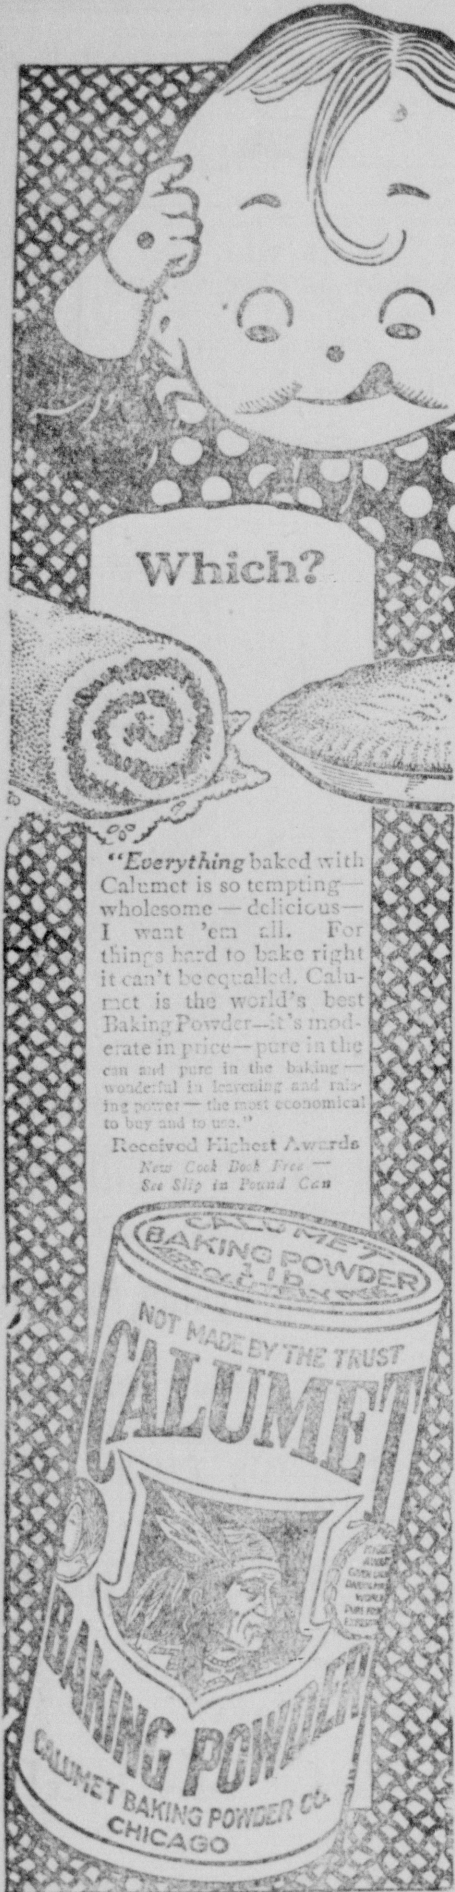 Which?
"Everything baked with
Calumet is so tempting—
wholesome — delicious—
I want 'em all. For
things hard to bake right
it can't be equalled. Calu-
met is the world's best
Baking Powder—it's mod-
erate in price—pure in the
can and pure in the baking—
wonderful in leavening and rais-
ing power — the most economical
to buy and to use."
Received Highest Awards
New Cook Book Free —
See Slip in Pound Can
CALUMET
BAKING POWDER
1 lb
NOT MADE BY THE TRUST
CALUMET
BAKING POWDER
CALUMET BAKING POWDER CO.
CHICAGO